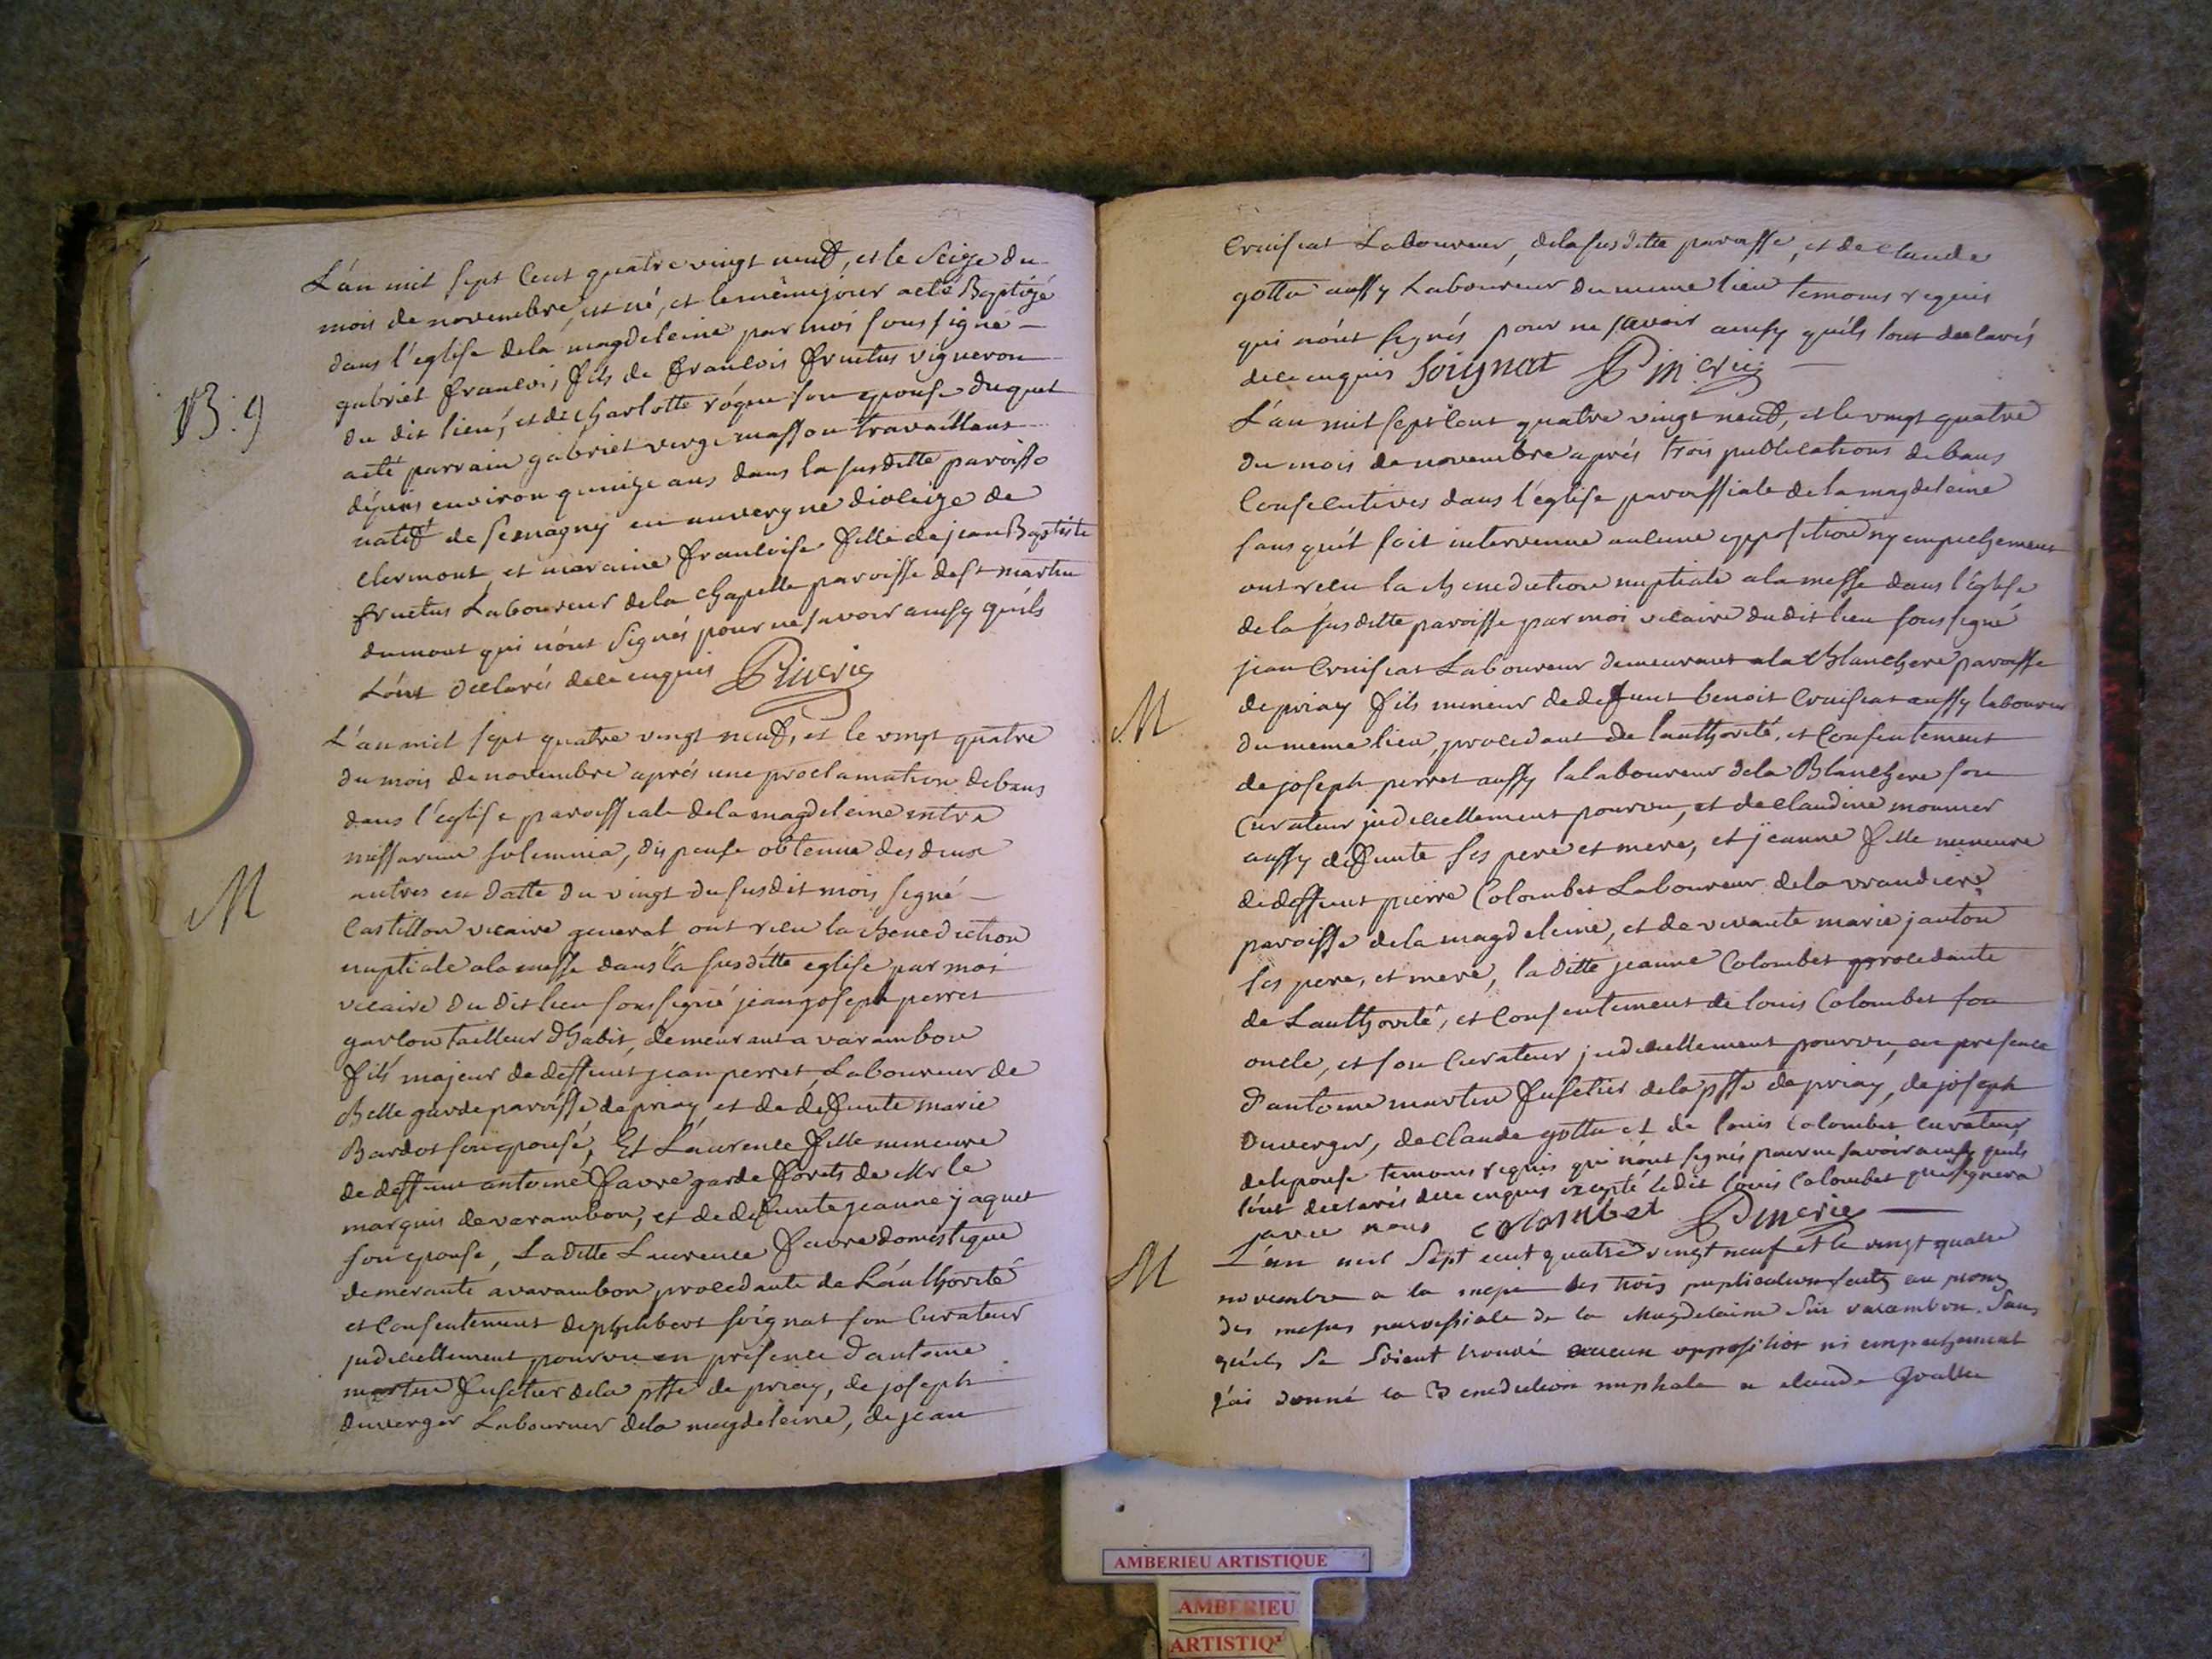 L'an mil sept cent quatre vingt neuf, et le seize du
mois de novembre, est né, et le même jour a eté Baptizé
dans l'eglise dela magdeleine par moi soussigné
gabriel francois fils de francois fructus vigneron
du dit lieu, et de charlotte rogue son epouse duquel
B. 9
a eté parrain gabriel verge masson travaillant
depuis environ quinze ans dans la susditte paroisse
natif de en auvergne dioceze de
clermont, et maraine francoise fille de jean Baptiste
fructus Laboureur dela chapelle paroisse de st martin
dumont qui n'ont signés pour ne savoir ainsy qu'ils
L'ont declarés de ce enquis
L'an mil sept quatre vingt neuf, et le vingt quatre
du mois de novembre aprés une proclamation de bans
dans l'eglise paroissiale dela magdeleine intra
missarum solemnia, dispense obtenue des deux
M
autres en datte du vingt du susdit mois signé
Castillon vicaire general ont recu la benediction
nuptiale a la messe dans la susditte eglise par moi
vicaire du dit lieu soussigné jean joseph perret
garcon tailleur d'habit, demeurant a varambon
fils majeur de deffunt jean perret, Laboureur de
Belle garde paroisse de priay et de defunte marie
Bardot son epouse, Et Laurence fille mineure
de deffunt antoine favre garde forets de Mr le
marquis de varambon, et de defunte jeanne jaquet
son epouse, Laditte Laurence favre domestique
demerante a varambon procedante de L'authorité
et consentement de philibert soignat son Curateur
judiciellement pourvu en presence d'antoine
martin fusetier dela psse de priay, de joseph
duverger Laboureur dela magdeleine, de jean
Cruisiat Laboureur, dela susditte paroisse, et de claude
gottu aussy Laboureur du meme lieu temoins requis
qui n'ont signés pour ne savoir ainsy qu'ils l'ont declarés
de ce enquis Soignat
L'an mil sept cent quatre vingt neuf, et le vingt quatre
du mois de novembre aprés trois publications de bans
Consecutives dans l'eglise paroissiale de la magdeleine
sans qu'il soit intervenue aulcune opposition ny empechement
ont recu la benediction nuptiale a la messe dans l'eglise
de la susditte paroisse par moi vicaire du dit lieu soussigné
jean Cruisiat Laboureur demeurant a la Blanchere paroisse
M
de priay fils mineur de defunt benoit Cruisiat aussy laboureur
du meme lieu, procedant de l'authorité, et Consentement
de joseph perret aussy lalaboureur dela Blanchere son
Curateur judiciellement pourvu, et de claudine monnier
aussy defunte ses pere et mere, et jeanne fille mineure
de deffunt pierre Colombet Laboureur dela vrandiere
paroisse dela magdeleine, et de vivante marie janton
ses pere, et mere, laditte jeanne Colombet procedante
de L'authorité, et Consentement de louis Colombet son
oncle, et son Curateur judiciellement pourvu, en presence
d'antoine martin fusetier dela psse de priay, de joseph
Duverger, de claude gottu et de louis Colombet curateur
de lepouse temoins requis qui n'ont signés pour ne savoir ainsy qu'ils
l'ont declarés de ce enquis excepté ledit louis Colombet qui signera
avec nous colombet
M
L'an mil Sept cent quatre vingt neuf et le vingt quatre
novembre a la des trois publications faites au prone
des messes paroissiale de la Magdelaine sur varambon. Sans
qu'il se soient trouvé aucune opposition ni empechement
j'ai donné la Benediction nuptiale a claude
AMBERIEU ARTISTIQUE
AMBERIEU
ARTISTIQ